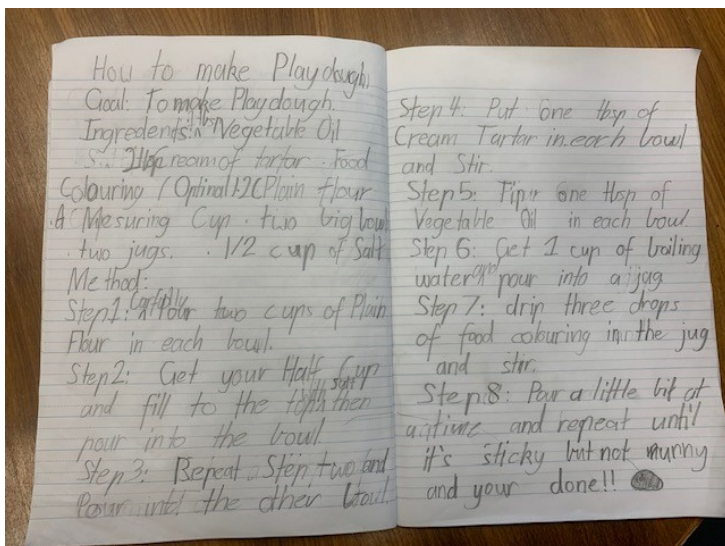 How to make Playdough
Goal: To make Playdough.
Ingredents: Vegetable Oil
2tbsp cream of tartar . Food
Colouring / Optinal 2C Plain flour
A Mesuring Cup . two big bowl
. two jugs. . 1/2 cup of Salt
Method:
Step1: Carfully Pour two cups of Plain
Flour in each bowl.
Step2: Get your Half Cup
and fill to the top with salt then
pour into the bowl
Step 3: Repeat Step two and
Pour into the other bowl
Step 4: Put one tbsp of
Cream Tartar in each bowl
and Stir.
Step 5: Tip one tbsp of
Vegetable Oil in each bowl.
Step 6: Get 1 cup of boiling
water and pour into a jug
Step 7: drip three drops
of food colouring in the jug
and stir.
Step 8: Pour a little bit at
a time and repeat until
it's sticky but not runny
and your done!!